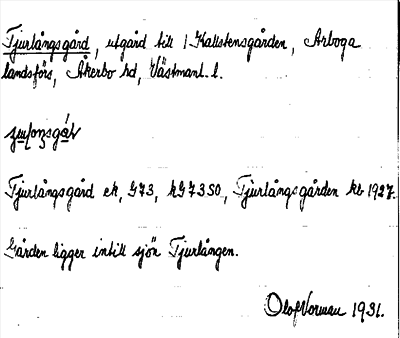 Tjurlångsgård, utgård till 1 Kallstensgården, Arboga
landsförs, Åkerbo hd, Västmanl. l.
Tjurlångsgård ek, G73, hG7350, Tjurlångsgården kb 1927.
Gården ligger intill sjön Tjurlången.
Olof Norman 1931.